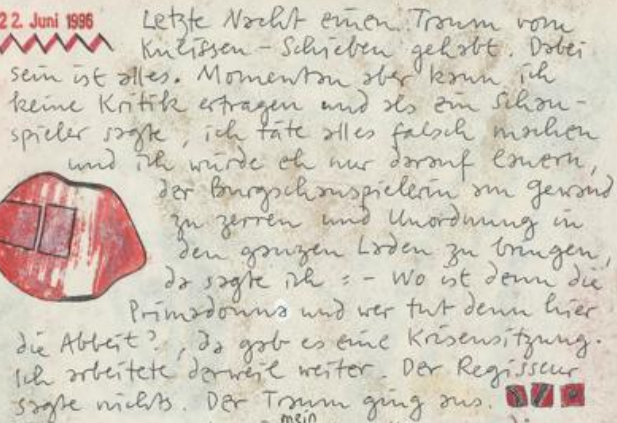 22. Juni 1996
Letzte Nacht einen Traum vom
Kulissen-Schieben gehabt. Dabei
sein ist alles. Momentan aber kann ich
keine Kritik ertragen und als ein Schau-
spieler sagte, ich täte alles falsch machen
und ich würde eh nur darauf lauern,
der Burgschauspielerin am Gewand
zu zerren und Unordnung in
den ganzen Laden zu bringen,
da sagte ich :- Wo ist denn die
Primadonna und wer tut denn hier
die Abbeit?, da gab es eine Krisensitzung.
Ich arbeitete derweil weiter. Der Regisseur
sagte nichts. Der Traum ging aus.
mein